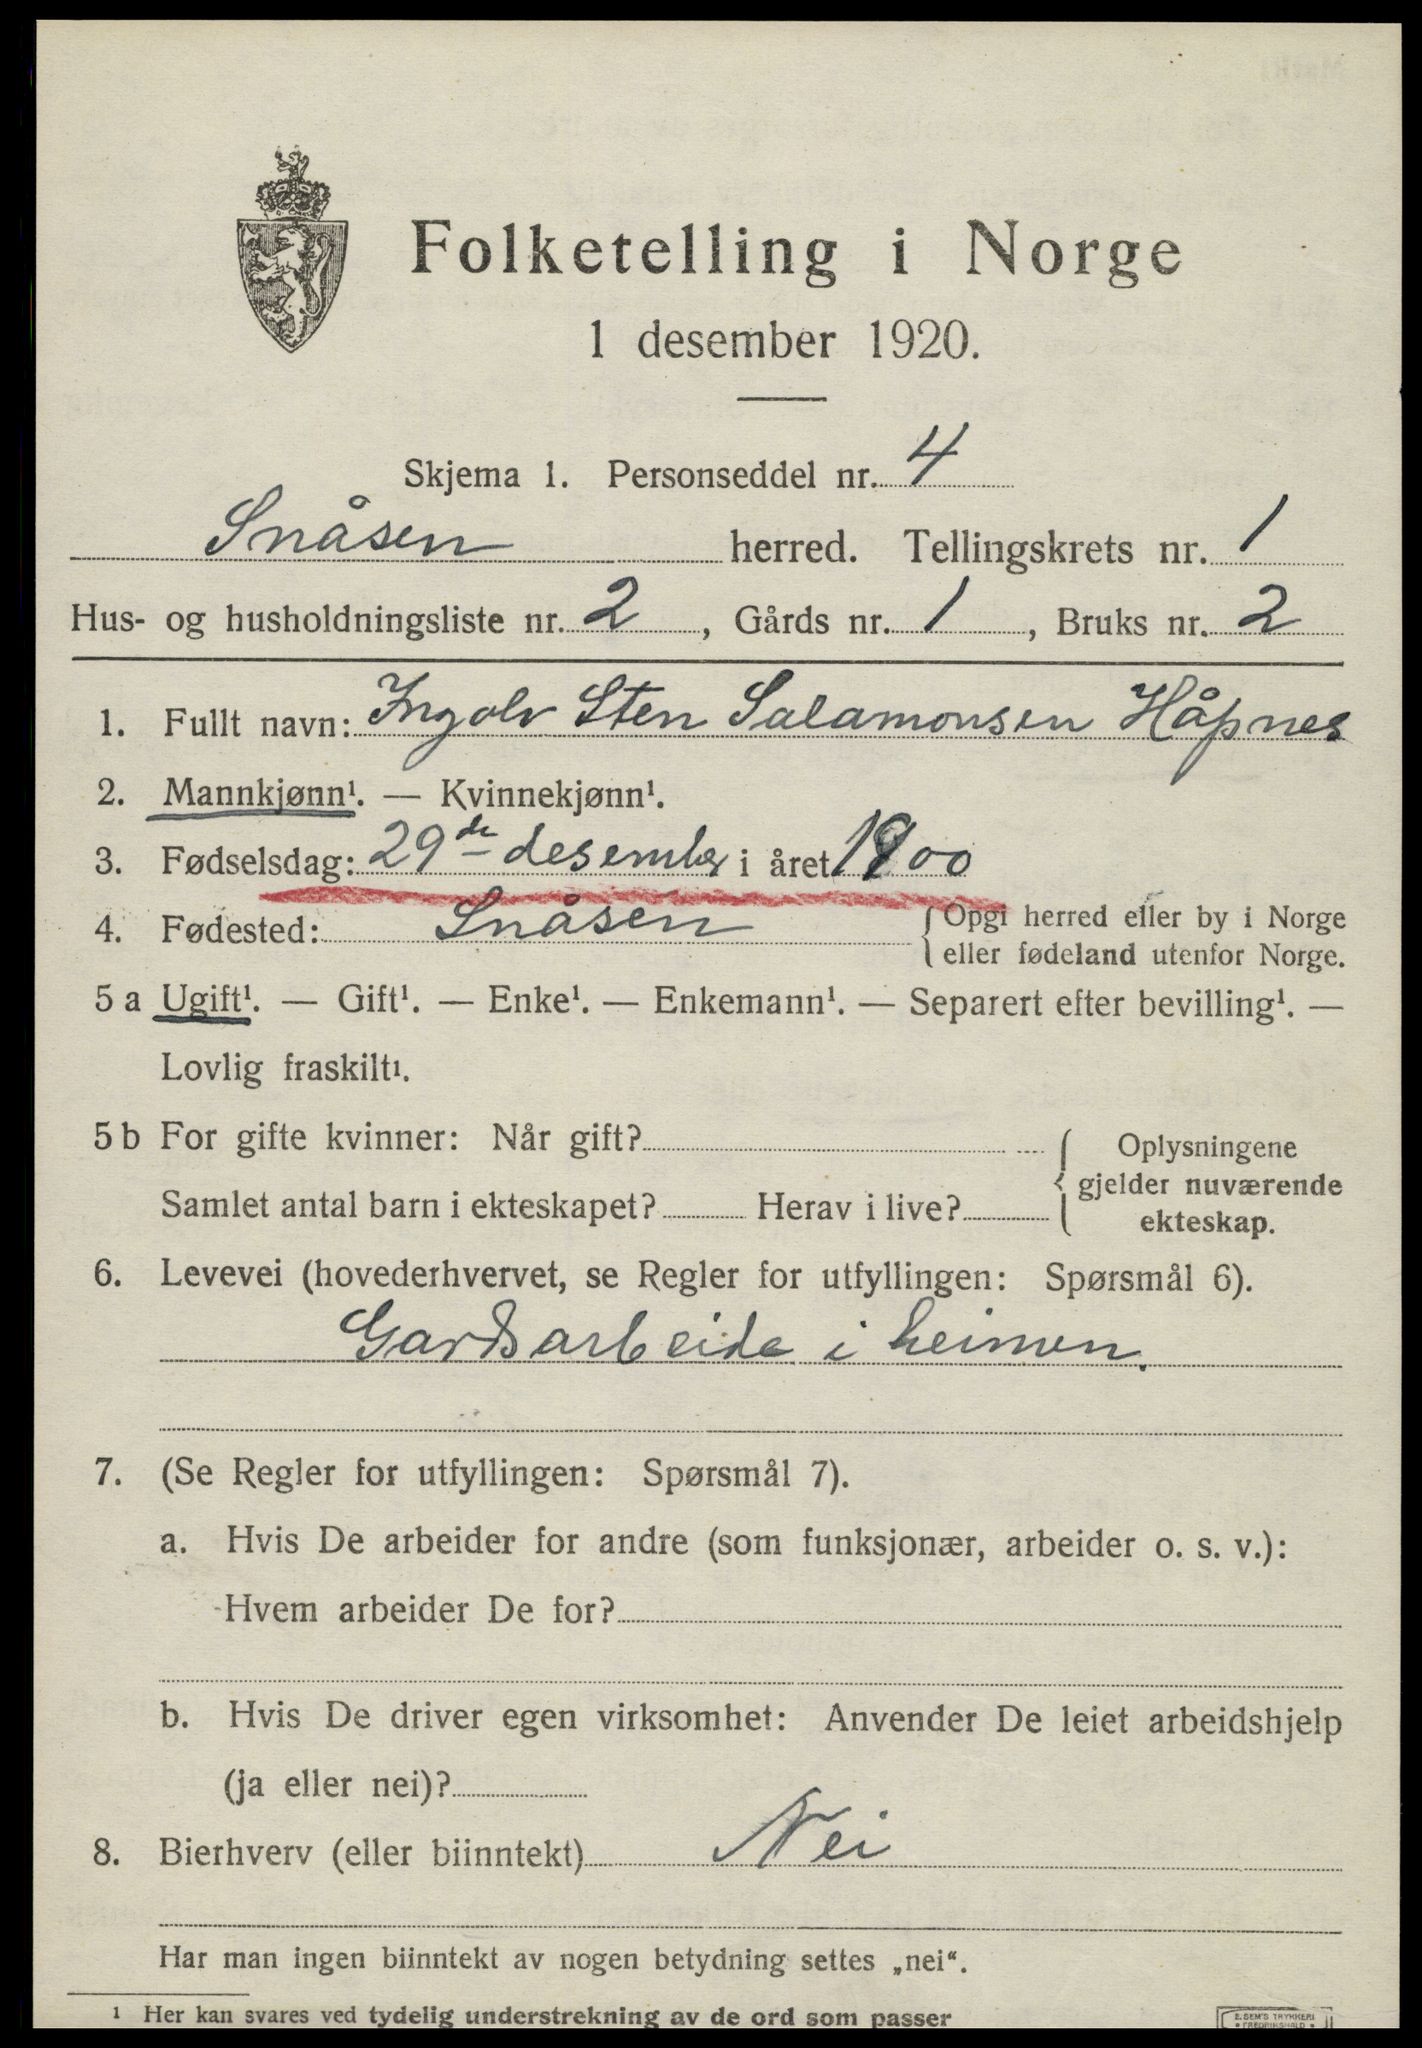 Folketelling i Norge
1 desember 1920.
Skjema 1. Personseddel nr. 4
Snåsen herred. Tellingskrets nr. 1
Hus- og husholdningsliste nr. 2, Gårds nr. 1, Bruks nr. 2
1. Fullt navn: Ingolv Sten Salamonsen Håpnes
2. Mannkjønn¹. — Kvinnekjønn¹.
3. Fødselsdag: 29de desember i året 1900
4. Fødested: Snåsen { Opgi herred eller by i Norge
eller fødeland utenfor Norge.
5 a Ugift¹. — Gift¹. — Enke¹. — Enkemann¹. — Separert efter bevilling¹. —
Lovlig fraskilt¹.
5 b For gifte kvinner: Når gift? { Oplysningene
gjelder nuværende
Samlet antal barn i ekteskapet? Herav i live? ekteskap.
6. Levevei (hovederhvervet, se Regler for utfyllingen: Spørsmål 6).
Gardsarbeide i heimen.
7. (Se Regler for utfyllingen: Spørsmål 7).
a. Hvis De arbeider for andre (som funksjonær, arbeider o. s. v.):
Hvem arbeider De for?
b. Hvis De driver egen virksomhet: Anvender De leiet arbeidshjelp
(ja eller nei)?
8. Bierhverv (eller biinntekt) Nei
Har man ingen biinntekt av nogen betydning settes „nei“.
¹ Her kan svares ved tydelig understrekning av de ord som passer
E. SEM'S TRYKKERI
• FREDRIKSHALD •